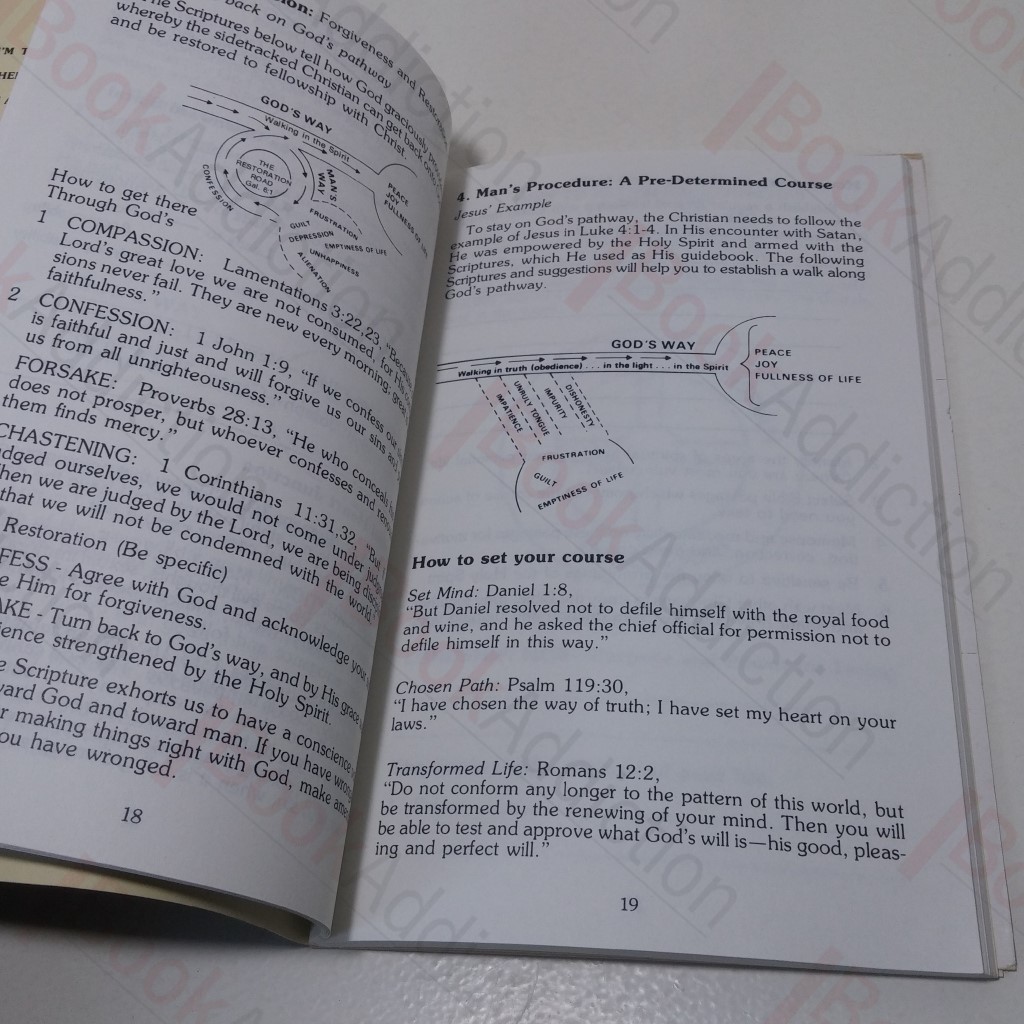 I'M T
HE
A
sion: Forgiveness and Resto
back on God's pathway
he Scriptures below tell how God graciously
whereby the sidetracked Christian can get back
and be restored to fellowship with Christ.
GOD'S WAY
Walking in the Spirit
THE
RESTORATION
ROAD
Gal. 6:1
CONFESSION
MAN'S
WAY
PEACE
JOY
FULLNESS OF LIFE
GUILT
FRUSTRATION
DEPRESSION
EMPTINESS OF LIFE
UNHAPPINESS
ALIENATION
How to get there
Through God's
1 COMPASSION: Lamentations 3:22,23, "Because
Lord's great love we are not consumed, for His
sions never fail. They are new every morning; great
faithfulness."
2 CONFESSION: 1 John 1:9, "If we confess our
is faithful and just and will forgive us our sins and
us from all unrighteousness."
FORSAKE: Proverbs 28:13, "He who conceals
does not prosper, but whoever confesses and reno
them finds mercy."
CHASTENING: 1 Corinthians 11:31,32, "But
dged ourselves, we would not come under judg
hen we are judged by the Lord, we are being disci
that we will not be condemned with the world."
Restoration (Be specific)
FESS - Agree with God and acknowledge your
e Him for forgiveness.
AKE - Turn back to God's way, and by His grace
ience strengthened by the Holy Spirit.
e Scripture exhorts us to have a conscience
ward God and toward man. If you have wrong
r making things right with God, make ame
ou have wronged.
18
4. Man's Procedure: A Pre-Determined Course
Jesus' Example
To stay on God's pathway, the Christian needs to follow the
example of Jesus in Luke 4:1-4. In His encounter with Satan,
He was empowered by the Holy Spirit and armed with the
Scriptures, which He used as His guidebook. The following
Scriptures and suggestions will help you to establish a walk along
God's pathway.
GOD'S WAY
Walking in truth (obedience) . . . in the light . . . in the Spirit
PEACE
JOY
FULLNESS OF LIFE
IMPATIENCE
UNRULY TONGUE
IMPURITY
DISHONESTY
FRUSTRATION
GUILT
EMPTINESS OF LIFE
How to set your course
Set Mind: Daniel 1:8,
"But Daniel resolved not to defile himself with the royal food
and wine, and he asked the chief official for permission not to
defile himself in this way."
Chosen Path: Psalm 119:30,
"I have chosen the way of truth; I have set my heart on your
laws."
Transformed Life: Romans 12:2,
"Do not conform any longer to the pattern of this world, but
be transformed by the renewing of your mind. Then you will
be able to test and approve what God's will is—his good, pleas-
ing and perfect will."
19
BookAddiction